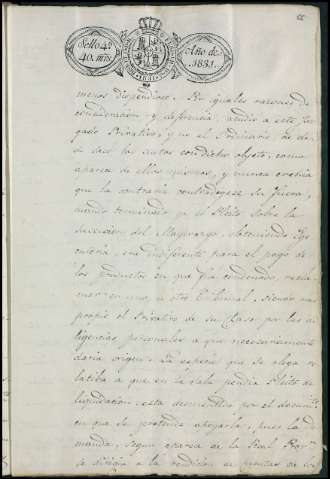 Sello 4º
40. mrs
Año de
1831.
menos dispendioso. Por iguales razones de
consideracion y deferencia, acudio a este Juz
gado Privativo, y no al Ordinario, de don
de sacó los autos con dicho objeto, como
aparece de ellos mismos, y nunca creeria
que la contraria contradigese su fuero,
cuando terminado ya el Pleito sobre la
sucesion del Mayorazgo, obteniendo Ege
cutoria, era indiferente para el pago de
los productos en que fue condenado, recla
marse en uno, u otro Tribunal, siendo mas
propio el Privativo de su Clase por las di
ligencias personales a que necesariamente
daria origen. La especie que se alega re
lativa a que en la Sala pendia Pleito de
liquidacion esta desmentida por el documto
en que se pretende apoyarla, pues la de
manda, segun aparece de la Real Provn
se dirigia a la rendicion de cuentas de los